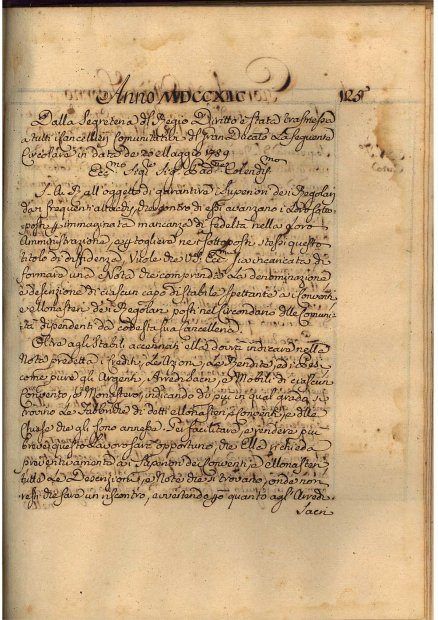 Anno MDCCXIC 125
Dalla Segreteria del Regio Diritto è stata trasmessa
a tutti i Cancellieri Comunitativi di Gran Ducato la seguente
Circolare in data de' 20 Maggio 1789
S. A. R. all'oggetto di garantire i Superiori dei Regolari
dai frequenti attacchi, che contro di essi avanzano i loro sotto
posti di immaginata mancanza di fedeltà nella loro
Amministrazione, e di togliere ne' sottoposti stessi questo
titolo di diffidenza, Vuole che VS. Ecc. sia incaricata di
formare una Nota che comprenda la denominazione
e desenzione di ciascun capo di stabile spettante ai Conventi,
e Monasteri dei Regolari posti nel Circondario delle Comuni
tà dipendenti da codesta sua Cancelleria.
Oltre agli Stabili accennati ella dovrà indicare nelle
Note predette i Crediti, le Azioni, le Rendite,
come pure gli Argenti, Arredi Sacri, e Mobili di ciascun
Convento, o Monastero, indicando di più in qual grado si
trovino le Fabbriche di detti Monasteri, e Conventi, e delle
Chiese che gli sono annesse. Per facilitare, e rendere più
breve questo lavoro sarà opportuno, che Ella richieda
preventivamente ai Superiori dei Conventi, e Monasteri
tutte le Desenzioni, e Note che si trovano, onde non
resti che fare un riscontro, avvertendo quanto agli Arredi
Sacri